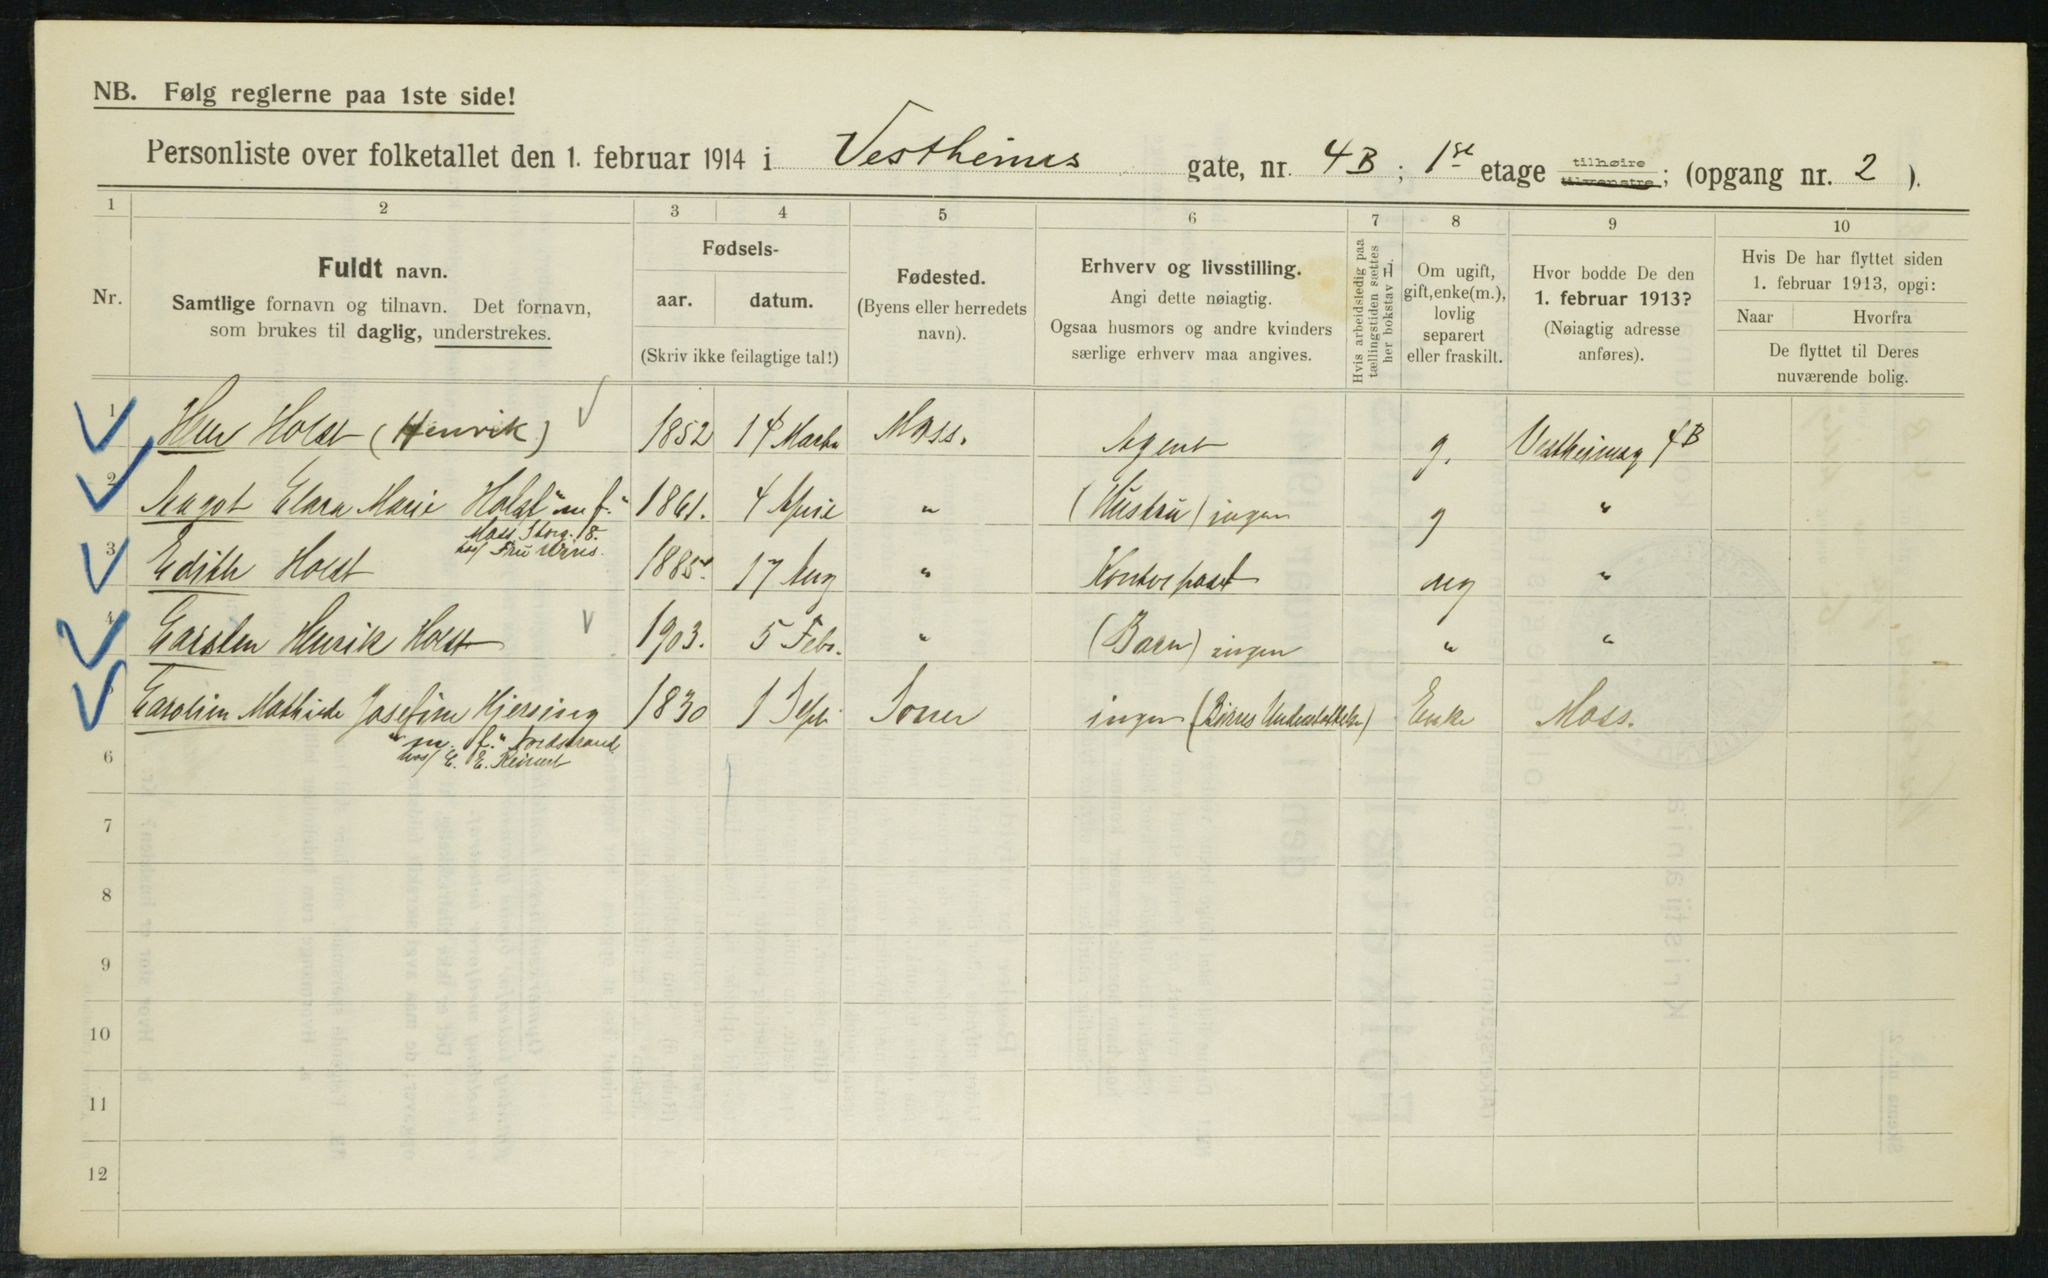 NB. Følg reglerne paa 1ste side!
Personliste over folketallet den 1. februar 1914 i Vestheims gate, nr. 4B; 1ste etage tilhøire tilvenstre; (opgang nr. 2).
1 2 3 4 5 6 7 8 9 10
Nr.
Fuldt navn.
Samtlige fornavn og tilnavn. Det fornavn,
som brukes til daglig, understrekes.
Fødsels-
aar. datum.
(Skriv ikke feilagtige tal!)
Fødested.
(Byens eller herredets
navn).
Erhverv og livsstilling.
Angi dette nøiagtig.
Ogsaa husmors og andre kvinders
særlige erhverv maa angives.
Hvis arbeidsledig paa
tællingstiden sættes
her bokstav L.
Om ugift,
gift, enke(m.),
lovlig
separert
eller fraskilt.
Hvor bodde De den
1. februar 1913?
(Nøiagtig adresse
anføres).
Hvis De har flyttet siden
1. februar 1913, opgi:
Naar Hvorfra
De flyttet til Deres
nuværende bolig.
1 Henr Holst (Henrik) 1852 14 Marts Moss. Agent g. Vestheimsg 4B
2 Aagot Clara Marie Holst "m f." 1861. 4 April " (Hustru) ingen g "
Moss Storg. 18.
hos/ Fru
3 Edith Holst 1885. 17 Aug " Kontorpost ug "
4 Carsten Henrik Holst 1903. 5 Febr. " (Barn) ingen " "
5 Carolin Mathilde Josefine Hjersing 1830 1 Sept. Soner ingen (Børns Understøttelse) Enke Moss.
" m. f." Nordstrand
hos/ E. E. Reinert
6
7
8
9
10
11
12